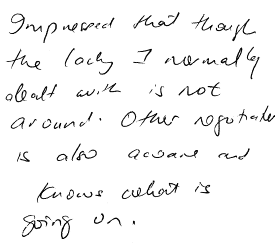 Impressed that though
the lady I normally
dealt with is not
around. Other negotiator
is also aware and
knows what is
going on.